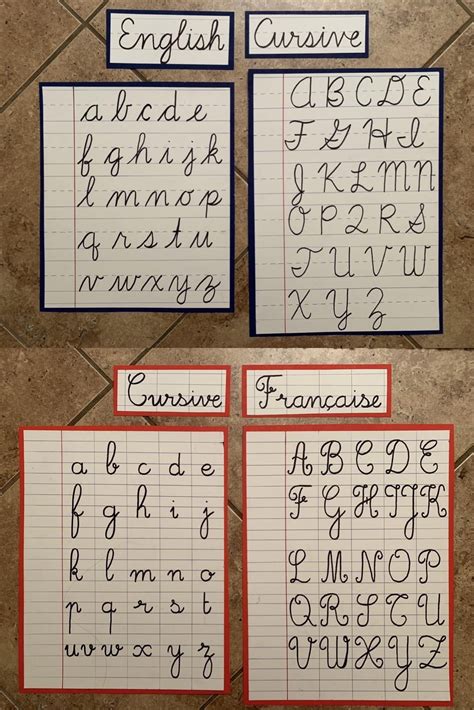 English Cursive
a b c d e
f g h i j k
l m n o p
q r s t u
v w x y z
A B C D E
F G H I
J K L M N
O P Q R S
T U V W
X Y Z
Cursive Française
a b c d e
f g h i j
k l m n o
p q r s t
u v w x y z
A B C D E
F G H I J K
L M N O P
Q R S T U
V W X Y Z